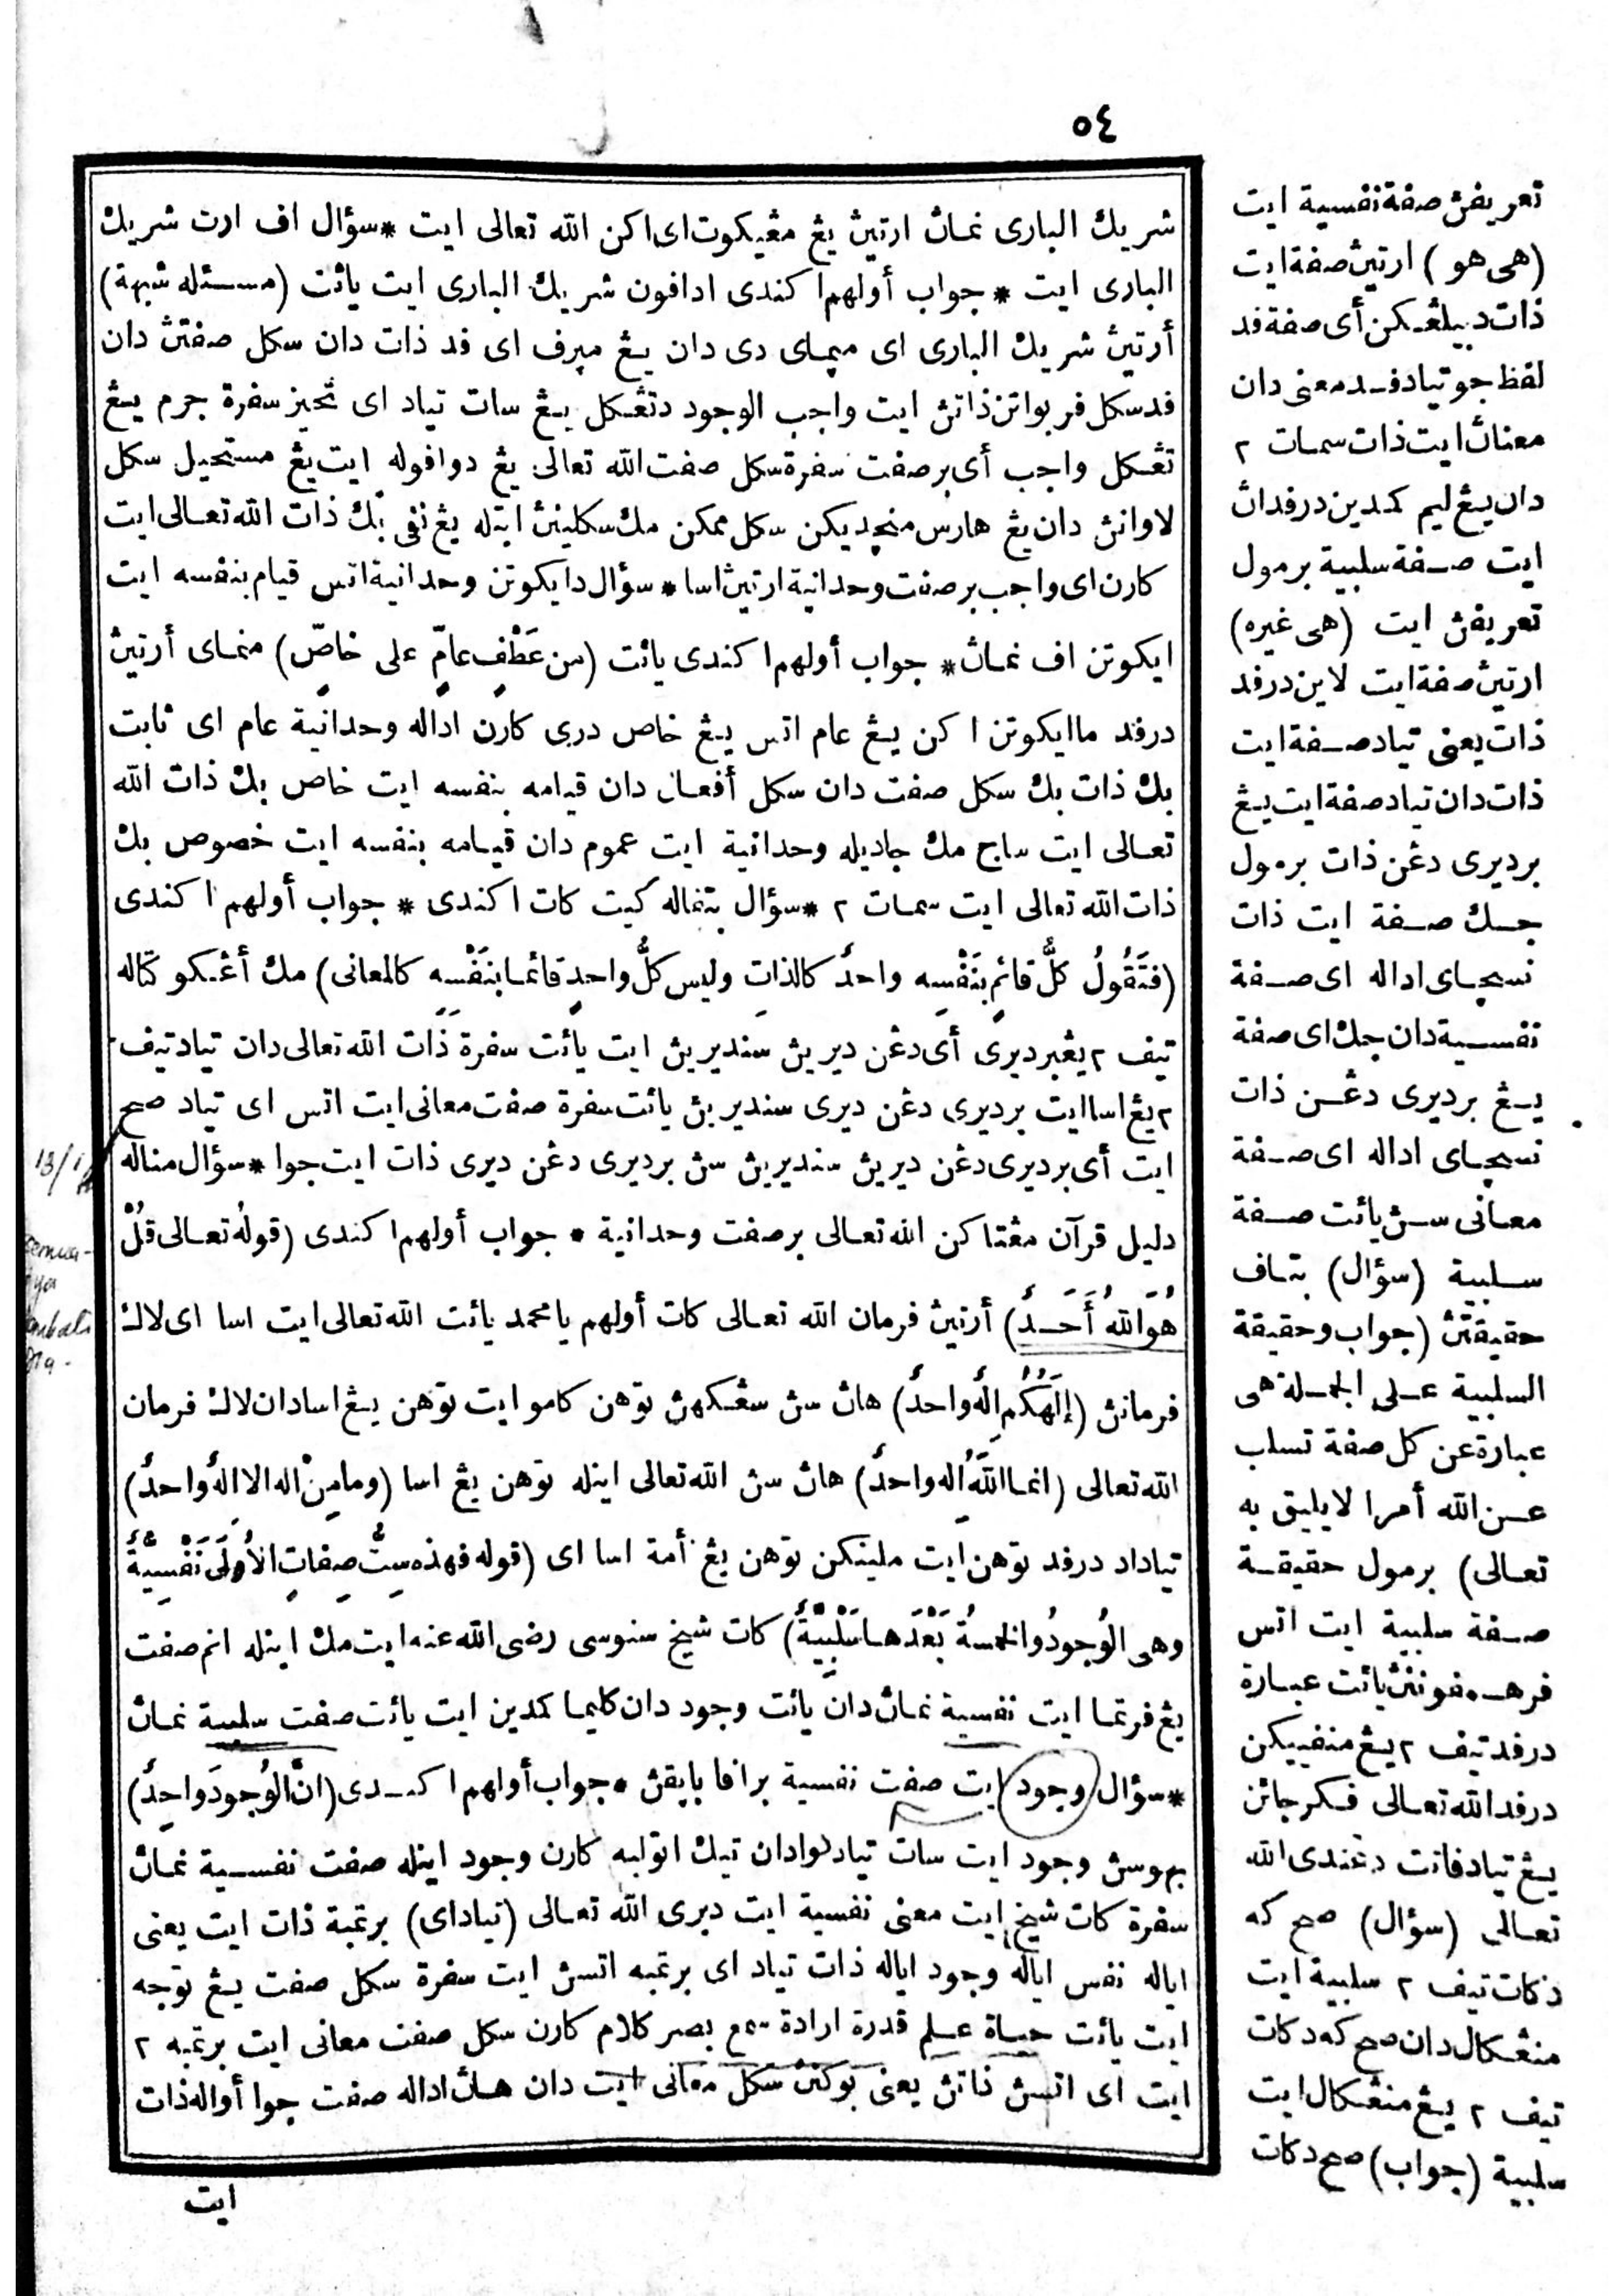 ٥٤
شريك الباري نمان ارتين يڠ مڠيكوت اي اكن الله تعالى ايت * سؤال اف ارت شريك
الباري ايت * جواب أولهم اكندي ادافون شريك الباري ايت يائت (مسئله شبهة)
أرتين شريك الباري اي ميماي دي دان يڠ ميرف اي فد ذات دان سكل صفتن دان
فد سكل فربواتن ذاتن ايت واجب الوجود دتڠكل يڠ سات تياد اي تحيز سفرة جرم يڠ
تڠكل واجب أي برصفت سفرة سكل صفت الله تعالى يڠ دوافوله ايت يڠ مستحيل سكل
لاوانن دان يڠ هارس منجديكن سكل ممكن مك سكلينن ايتله يڠ نفي بݢ ذات الله تعالى ايت
كارن اي واجب برصفت وحدانية ارتين اسا * سؤال دايكوتن وحدانية اتس قيام بنفسه ايت
ايكوتن اف نمان * جواب أولهم اكندي يائت (من عَطْفِ عامٍّ على خاصٍّ) منماي أرتين
درفد ما ايكوتن اكن يڠ عام اتس يڠ خاص دري كارن اداله وحدانية عام اي ثابت
بݢ ذات بݢ سكل صفت دان سكل أفعال دان قيامه بنفسه ايت خاص بݢ ذات الله
تعالى ايت ساج مك جاديله وحدانية ايت عموم دان قيامه بنفسه ايت خصوص بݢ
ذات الله تعالى ايت سمات ٢ * سؤال بتماله كيت كات اكندي * جواب أولهم اكندي
(فتَقُولُ كلُّ قائمٍ بنَفْسِه واحدٌ كالذاتِ وليس كلُّ واحدٍ قائما بنَفْسِه كالمعاني) مك أڠكو كتاله
تيف ٢ يڠ برديري أي دڠن ديرين سنديرين ايت يائت سفرة ذات الله تعالى دان تياد تيف
٢ يڠ اسا ايت برديري دڠن ديري سنديرين يائت سفرة صفت معاني ايت اتس اي تياد صح
ايت أي برديري دڠن ديرين سنديرين سن برديري دڠن ديري ذات ايت جوا * سؤال مناله
دليل قرآن مڠتاكن الله تعالى برصفت وحدانية * جواب أولهم اكندي (قولُه تعالى قُلْ
هُوَ اللهُ أَحَدٌ) أرتين فرمان الله تعالى كات أولهم يا محمد يائت الله تعالى ايت اسا اي لاݢ
فرمانن (إلَهُكُم إلهٌ واحدٌ) هان سن سڠكهن توهن كامو ايت توهن يڠ اسا دان لاݢ فرمان
الله تعالى (انما اللهُ اله واحدٌ) هان سن الله تعالى اينله توهن يڠ اسا (وما مِنْ اله الا الهٌ واحدٌ)
تياداد درفد توهن ايت ملينكن توهن يڠ أمة اسا اي (قوله فهذه سِتُّ صِفاتٍ الأُولَى نَفْسِيَّةٌ
وهي الوُجودُ والخمسةُ بَعْدَها سَلْبِيَّةٌ) كات شيخ سنوسي رضى الله عنه ايت مك اينله انم صفت
يڠ فرتما ايت نفسية نمان دان يائت وجود دان كليما كمدين ايت يائت صفت سلبية نمان
* سؤال وجود ايت صفت نفسية برافا بايقن * جواب أولهم اكندي (انَّ الوُجودَ واحِدٌ)
بهوسن وجود ايت سات تياد لوادان تيݢ اتوليه كارن وجود اينله صفت نفسية نمان
سفرة كات شيخ ايت معنى نفسية ايت ديري الله تعالى (تياداي) برتمبة ذات ايت يعني
اياله نفس اياله وجود اياله ذات تياد اي برتمبه اتسن ايت سفرة سكل صفت يڠ توجه
ايت يائت حياة علم قدرة ارادة سمع بصر كلام كارن سكل صفت معاني ايت برتمبه ٢
ايت اي اتسن ذاتن يعني بوكنن سكل معاني ايت دان هان اداله صفت جوا أواله ذات
ايت
تعريفن صفة نفسية ايت
(هي هو) ارتين صفة ايت
ذات دبيلڠكن أي صفة فد
لفظ جو تياد فد معنى دان
معنان ايت ذات سمات ٢
دان يڠ ليم كمدين درفدان
ايت صفة سلبية برمول
تعريفن ايت (هي غيره)
ارتين صفة ايت لاين درفد
ذات يعني تياد صفة ايت
ذات دان تياد صفة ايت يڠ
برديري دڠن ذات برمول
جك صفة ايت ذات
نسچاي اداله اي صفة
نفسية دان جك اي صفة
يڠ برديري دڠن ذات
نسچاي اداله اي صفة
معاني سن يائت صفة
سلبية (سؤال) بتاف
حقيقتن (جواب وحقيقة
السلبية على الجملة هي
عبارة عن كل صفة تسلب
عن الله أمرا لا يليق به
تعالى) برمول حقيقة
صفة سلبية ايت اتس
فرهمفونن يائت عبارة
درفد تيف ٢ يڠ منفييكن
درفد الله تعالى فكرجائن
يڠ تياد فاتت دڠندي الله
تعالى (سؤال) صح كه
دكات تيف ٢ سلبية ايت
منڠكال دان صح كه دكات
تيف ٢ يڠ منڠكال ايت
سلبية (جواب) صح دكات